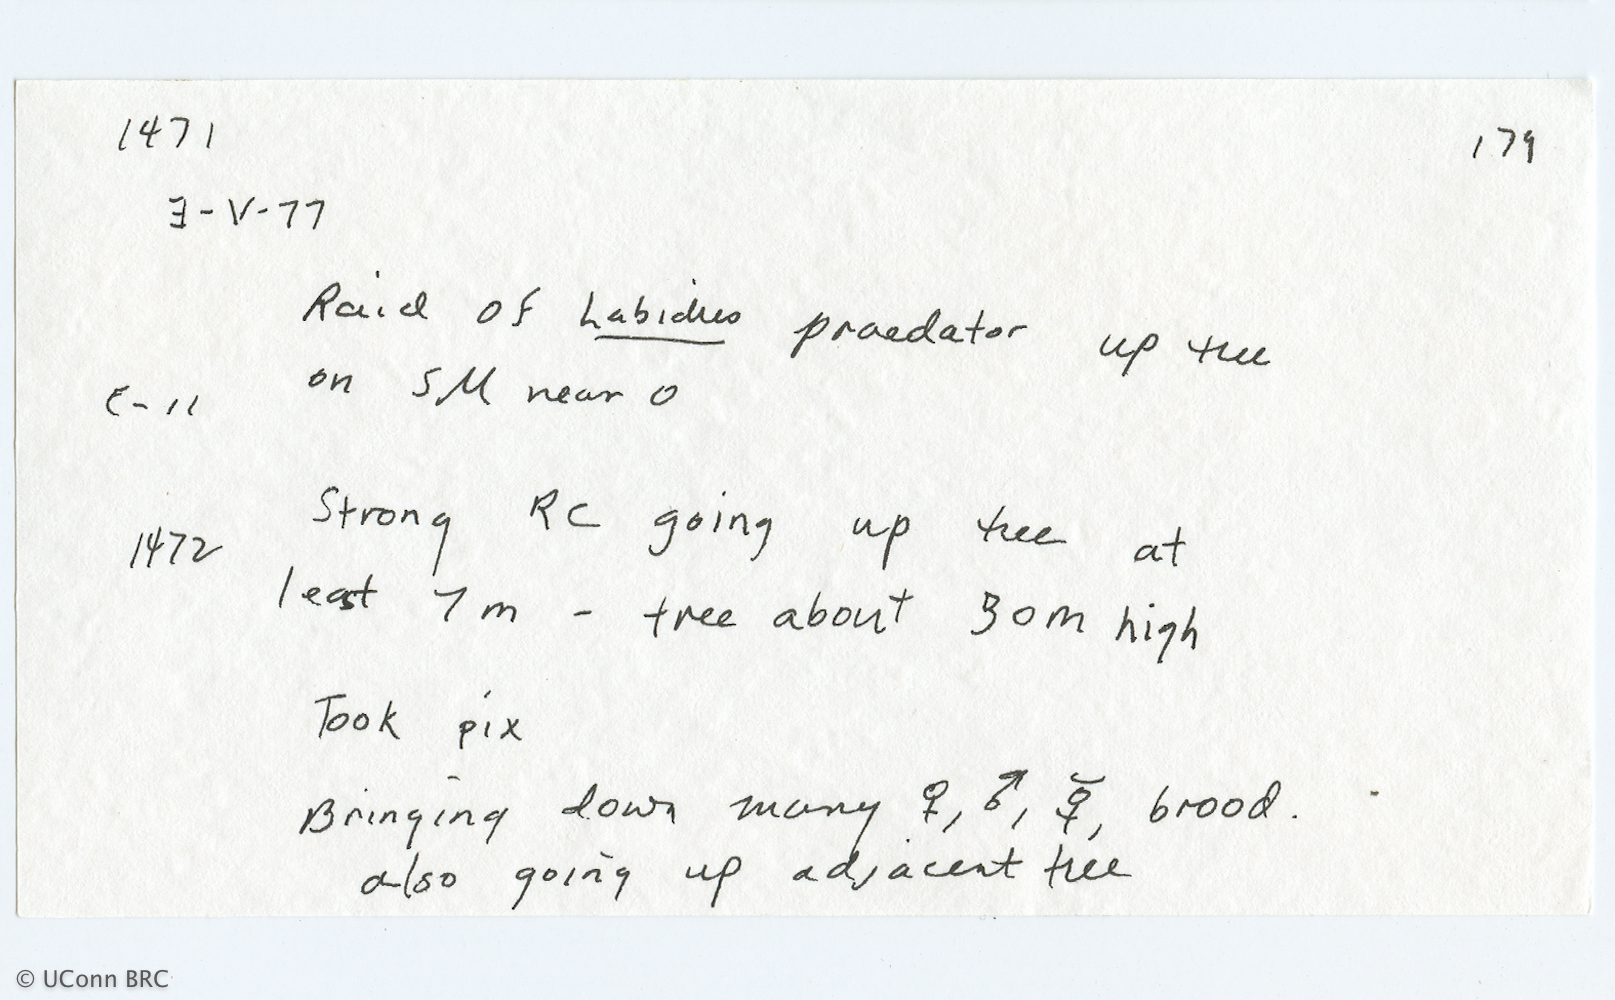 1471
179
3-V-77
Raid of Labidus praedator up tree
on SM near 0
E-11
Strong RC going up tree at
1472
least 7m - tree about 30m high
Took pix
Bringing down many ♀, ♂, ☿, brood.
also going up adjacent tree
© UConn BRC